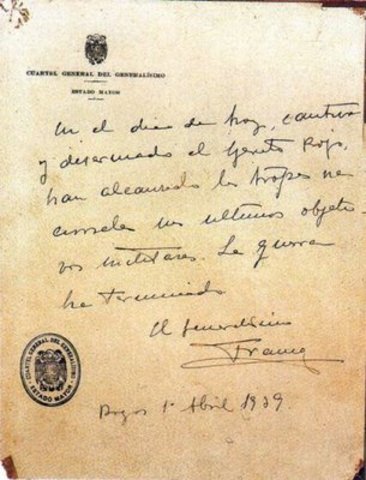 CUARTEL GENERAL DEL GENERALÍSIMO
ESTADO MAYOR
En el dia de hoy, cautivo
y desarmado el Ejercito Rojo,
han alcanzado las tropas na-
cionales sus ultimos objeti-
vos militares. La guerra
ha terminado
El Generalisimo
Franco
Burgos 1º Abril 1939.
CUARTEL GENERAL DEL GENERALISIMO
ESTADO MAYOR